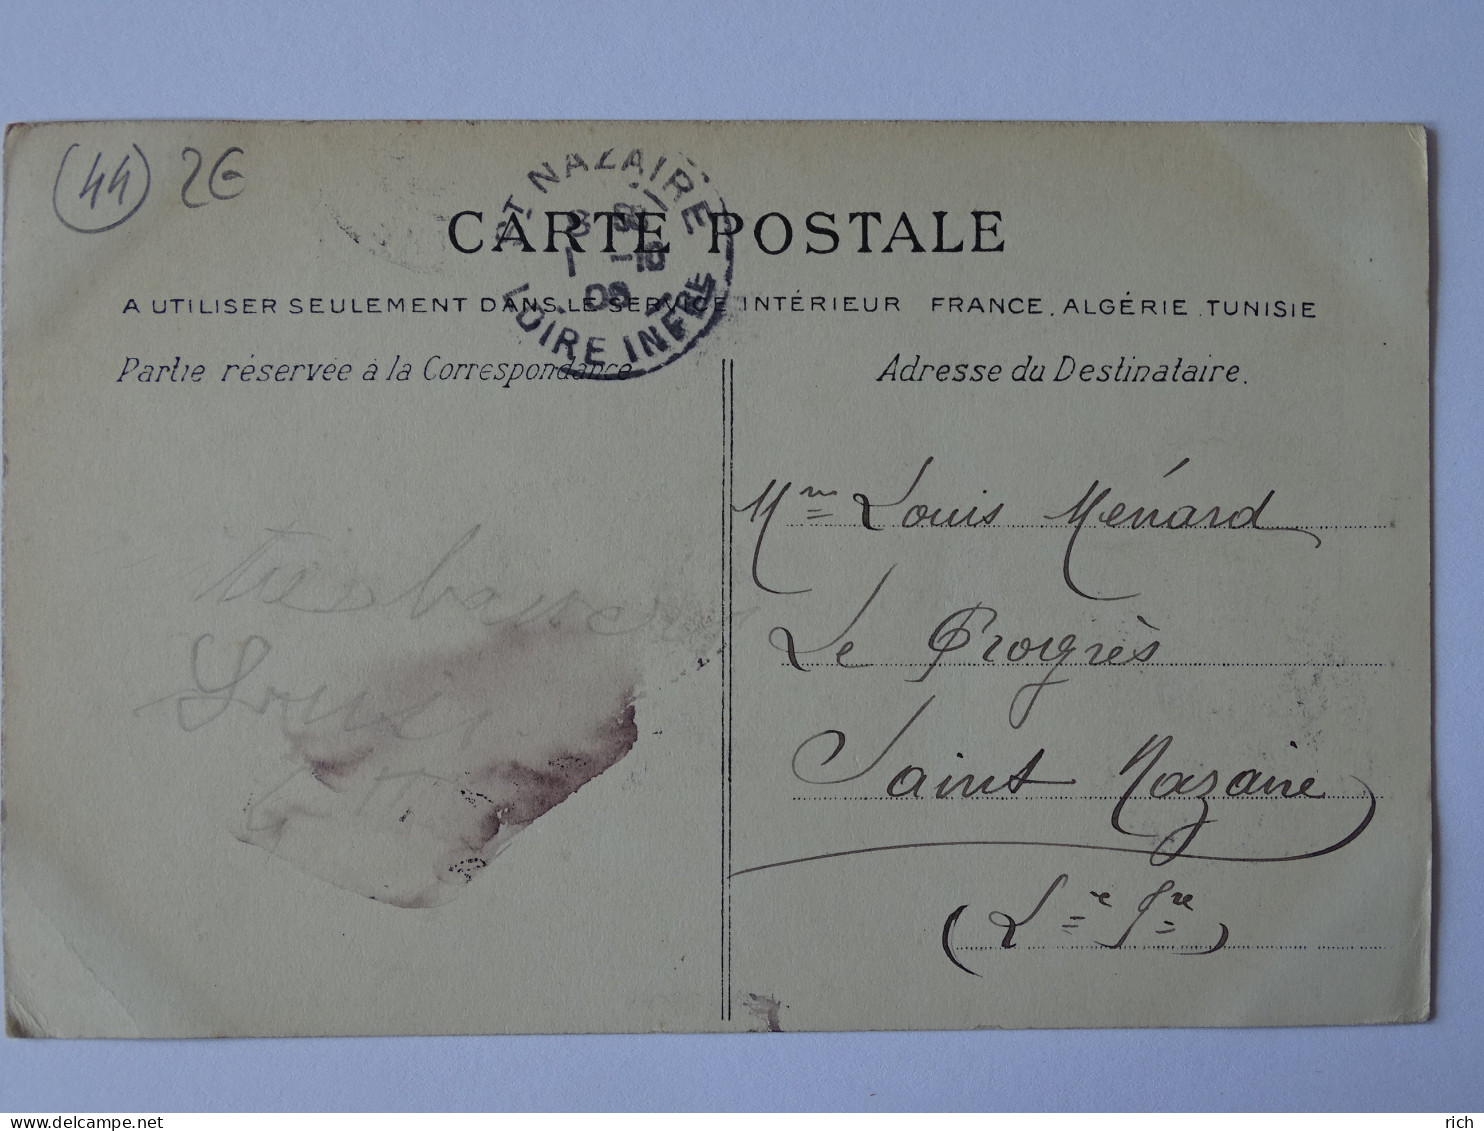 (44) 2€
ST NAZAIRE
LOIRE INFRE
CARTE POSTALE
A UTILISER SEULEMENT DANS LE SERVICE INTÉRIEUR FRANCE, ALGÉRIE, TUNISIE
Partie réservée à la Correspondance
Adresse du Destinataire.
Mme Louis Ménard
Le Progrès
Saint Nazaire
(Lre Fre)
Louis
rich